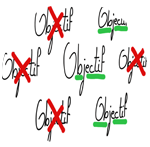 Objectif
Objectif
Objectif
Objectif
Objectif
Objectif